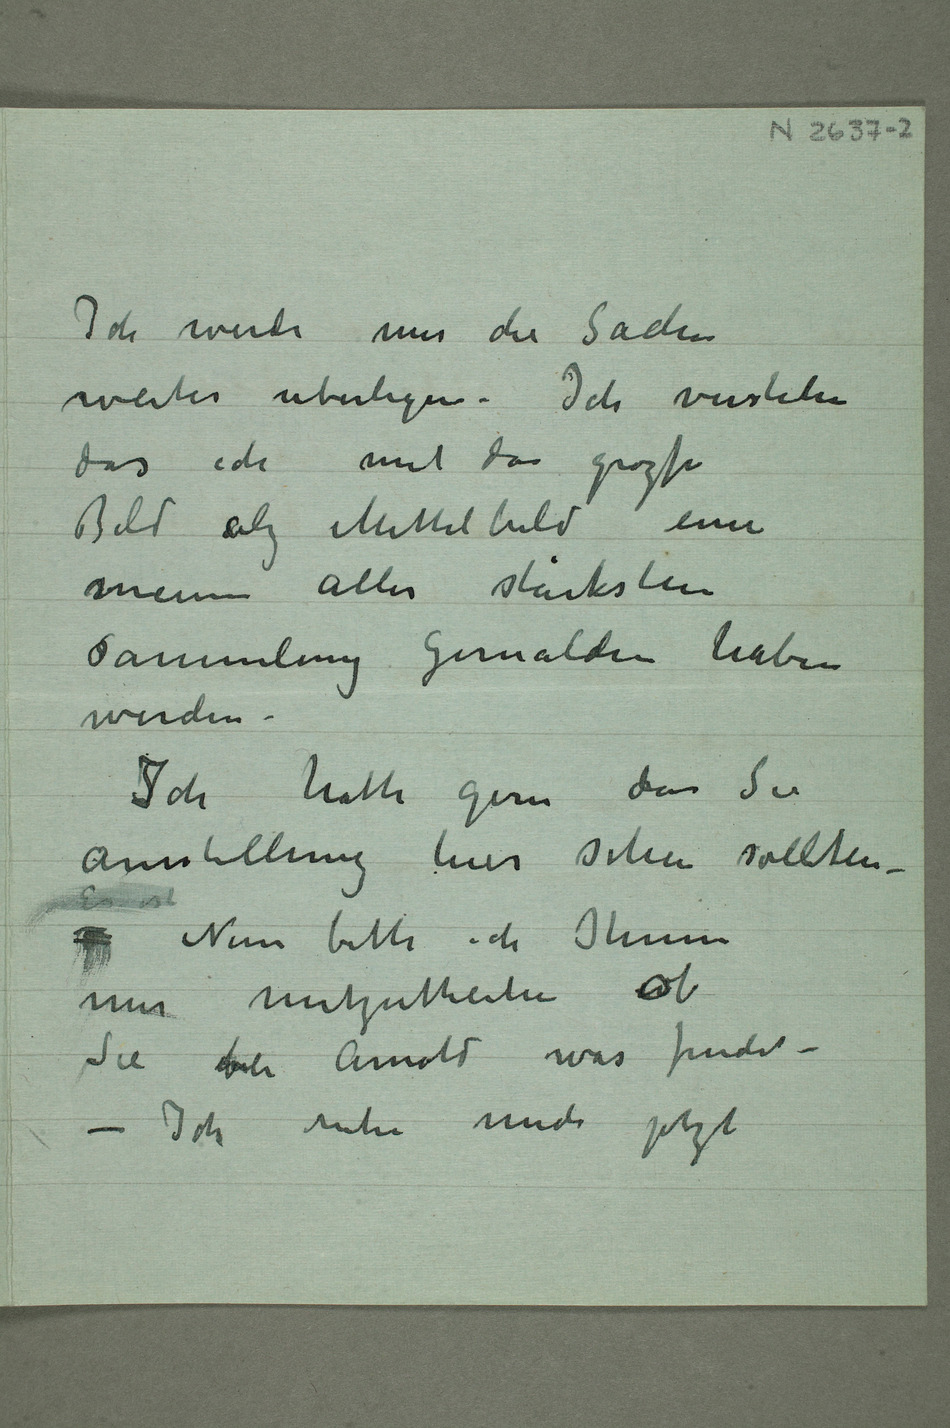 N 2637-2
Ich werde mir die Sachen
weiter uberlegen – Ich verstehe
das ich mit das grozse
Bild alz Mittelbild eine
meine aller stärksten
Sammlung Gemälden haben
werden –
Ich hätte gern das Sie
Ausstellung hier sehen sollten –
Es ist
Nun bitte ich Ihnen
mir mitzutheilen ob
Sie bei Arnold was findet –
– Ich ruhe mich jetzt